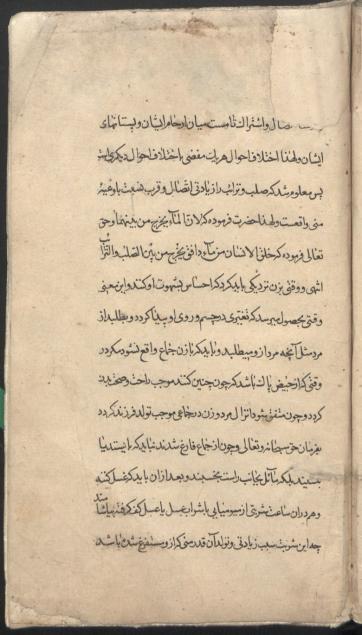 اتصال و اشتراک تام است میان ارحام ایشان و پستانهای
ایشان ولهذا اختلاف احوال هر یک مفضی باختلاف احوال دیگری است
پس معلوم شد که صلب و ترائب را زیادتی اتصال و قرب نسبت باوعیهٔ
منی واقعست ولهذا حضرت فرموده که لان الماء یخرج من بینهما و حق
تعالی فرموده که خلق الانسان من ماء دافق یخرج من بین الصلب والترائب
انتهی و وقتی بزن نزدیکی باید کرد که احساس بشهوت او کند و این معنی
وقتی بحصول میرسد که تغیری در چشم و روی او پیدا گردد و بطلبد از
مرد مثل آنچه مرد از و میطلبد و باید که با زن جماع واقع نشود مگر در
وقتی که از حیض پاک باشد که چون چنین کنند موجب راحت و صحت بدن
گردد و چون متفق شود انزال مرد و زن در جماعی موجب تولد فرزند گردد
بفرمان حق سبحانه و تعالی و چون از جماع فارغ شدند نباید که بایستد یا
بنشیند بلکه مائل بجانب راست بخسبند و بعد از آن باید که غسل کند
و هم در آن ساعت شربتی از مومیایی با شراب عسل یا عسل کف گرفته بیاشامند
چه این شربت سبب زیادتی و تولد آن قدر منی که از و مستفرغ شده باشد